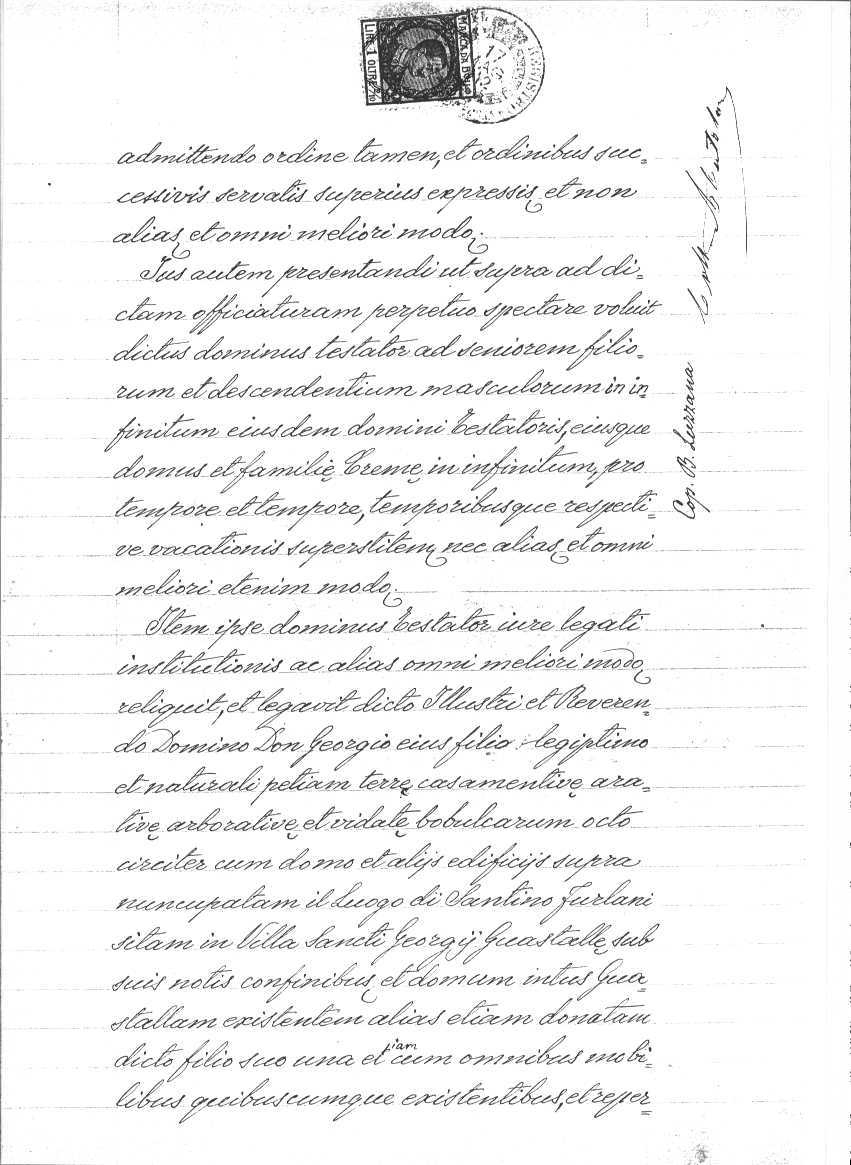 LIRE 1 OLTRE 2/10
MARCA DA BOLLO
REGISTRO
17
admittendo ordine tamen, et ordinibus suc=
cessivis servatis superius expressis, et non
alias, et omni meliori modo;
Ius autem presentandi ut supra ad di=
ctam officiaturam perpetuo spectare voluit
dictus dominus testator ad seniorem filio=
rum et descendentium masculorum in in=
finitum eiusdem domini Testatoris, eiusque
domus et familię Cremę in infinitum, pro
tempore et tempore, temporibusque respecti=
ve vacationis superstitem, nec alias, et omni
meliori etenim modo;
Item ipse dominus Testator iure legati
institutionis ac alias omni meliori modo,
reliquit, et legavit dicto Illustri et Reveren=
do Domino Don Georgio eius filio legiptimo
et naturali petiam terrę casamentivę ara=
tivę arborativę et vidatę bobulcarum octo
circiter cum domo et alijs edificijs supra
nuncupatam il Luogo di Santino Furlani
sitam in Villa Sancti Georgij Guastallę sub
suis notis confinibus, et domum intus Gua=
stallam existentem alias etiam donatam
dicto filio suo una et iam cum omnibus mobi=
libus quibuscumque existentibus, et reper=
Cop. B. Luzzana